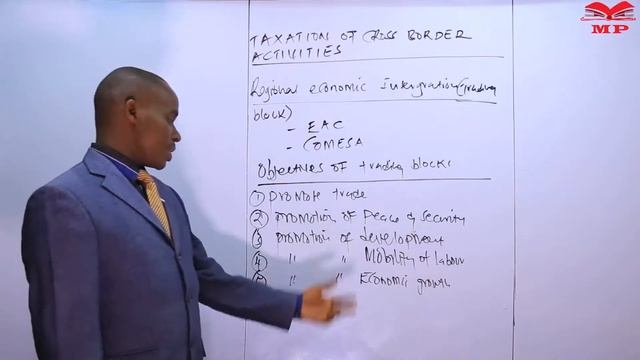 MP
TAXATION OF CROSS BORDER
ACTIVITIES
Regional economic Intergration (trading
block)
- EAC
- COMESA
Objectives of trading blocks
① promote trade
② promotion of Peace & security
③ promotion of development
④ " " Mobility of labour
⑤ " " Economic growth